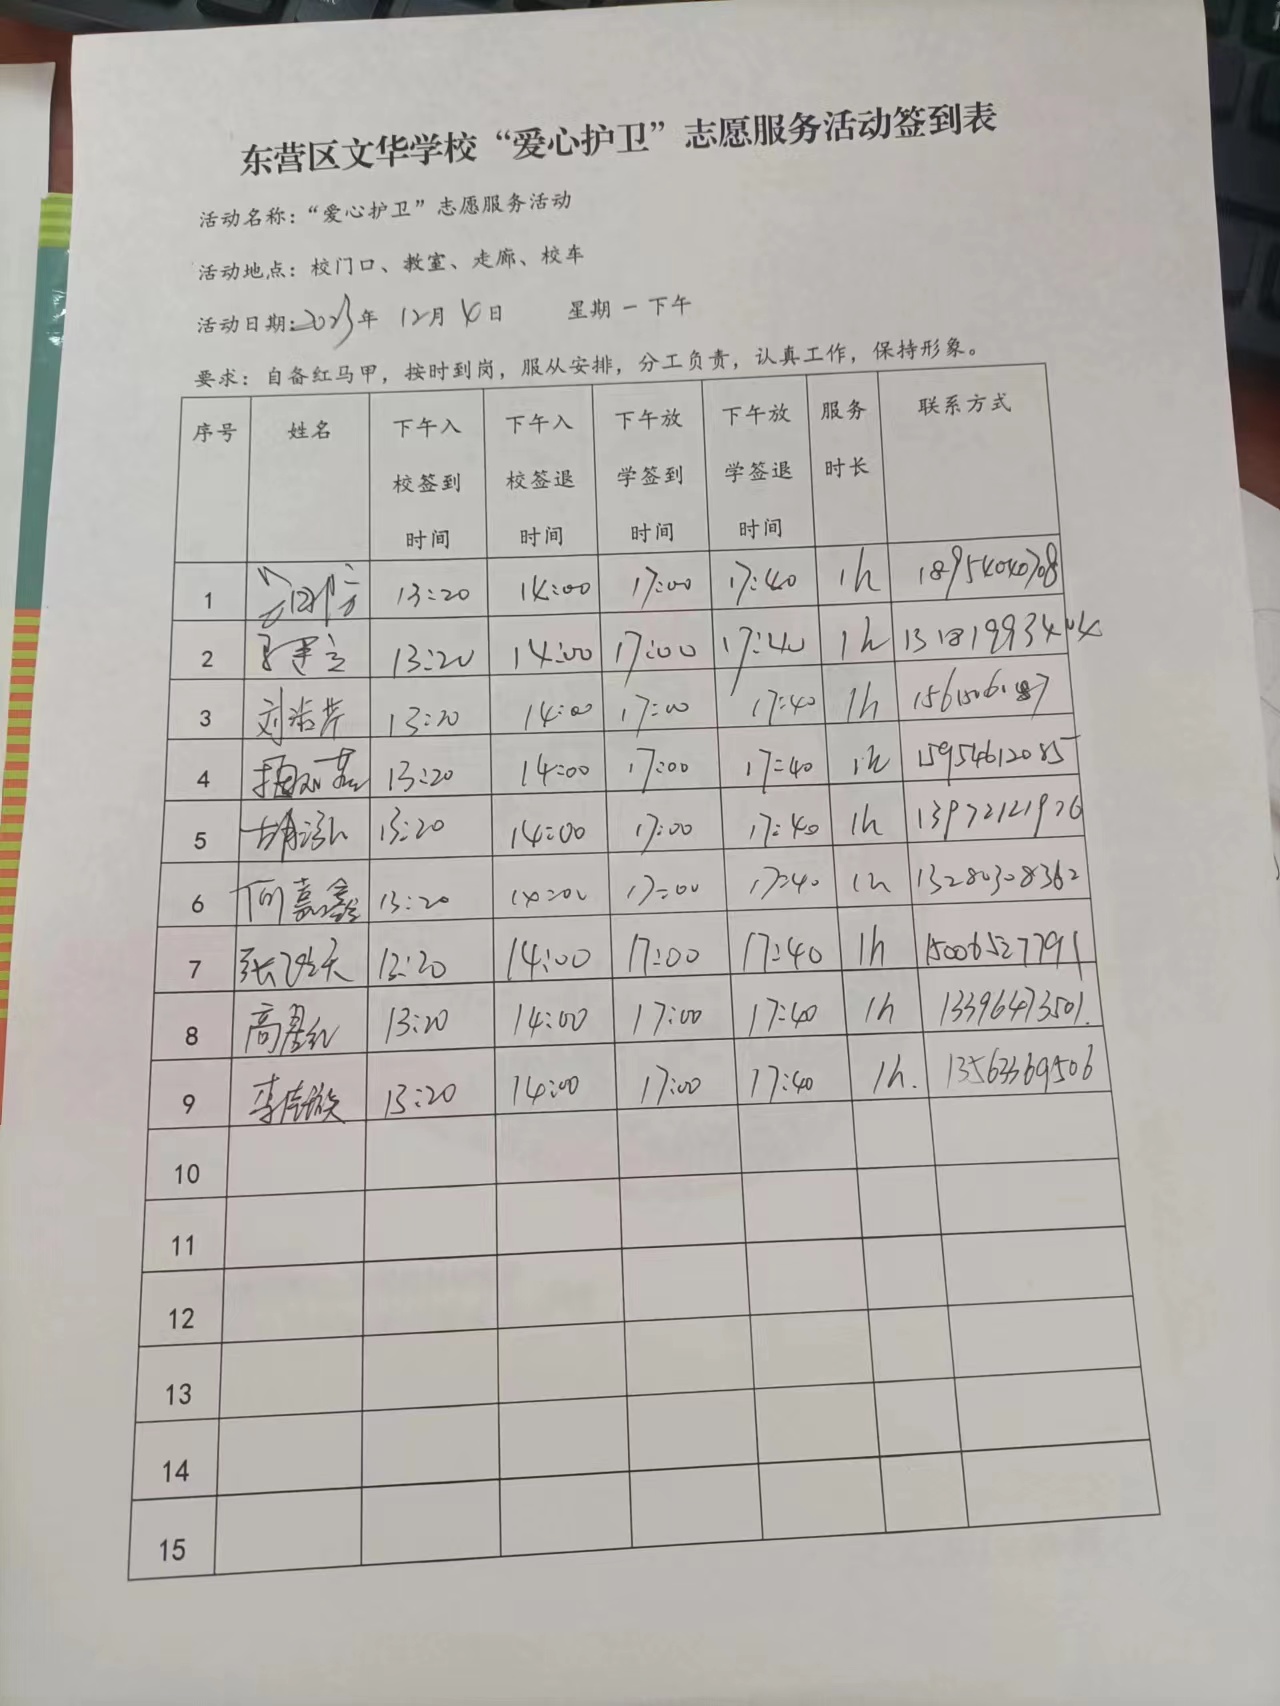 东营区文华学校“爱心护卫”志愿服务活动签到表
活动名称：“爱心护卫”志愿服务活动
活动地点：校门口、教室、走廊、校车
活动日期：2023年 12月 4日 星期一下午
要求：自备红马甲，按时到岗，服从安排，分工负责，认真工作，保持形象。
序号 姓名 下午入校签到时间 下午入校签退时间 下午放学签到时间 下午放学签退时间 服务时长 联系方式
1 13:20 14:00 17:00 17:40 1h 18954040708
2 13:20 14:00 17:00 17:40 1h
3 13:20 14:00 17:00 17:40 1h
4 13:20 14:00 17:00 17:40 1h 15954612085
5 13:20 14:00 17:00 17:40 1h
6 何嘉鑫 13:20 14:00 17:00 17:40 1h 13280308362
7 13:20 14:00 17:00 17:40 1h 15006527791
8 13:20 14:00 17:00 17:40 1h 13396473501.
9 13:20 14:00 17:00 17:40 1h. 13563369506
10
11
12
13
14
15